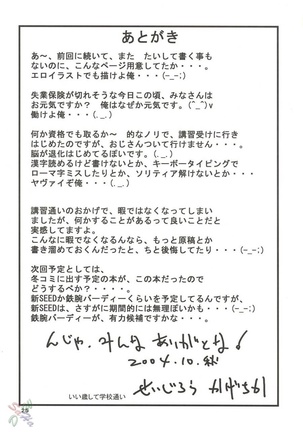 あとがき
あ～、前回に続いて、また　たいして書く事も
ないのに、こんなページ用意してたか・・・。
エロイラストでも描けよ俺・・・(-_-;)
失業保険が切れそうな今日この頃、みなさんは
お元気ですか？　俺はなぜか元気です。(^_^)v
働けよ俺・・・(._.)
何か資格でも取るか～　的なノリで、講習受けに行き
はじめたのですが、おじさんついて行けません・・・。
脳が退化はじめてるぽいです。(._.)
漢字読めるけど書けないとか、キーボータイピングで
ローマ字ミスしたりとか、ソリティア解けないとか・・・
ヤヴァイぞ俺・・・(._.)
講習通いのおかげで、暇ではなくなってしまい
ましたが、何かすることがあるって良いことだと
実感してますよ。
こんなに暇でなくなるんなら、もっと原稿とか
書き溜めておくんだったと、ちと後悔してたり・・・(-_-;)
次回予定としては、
冬コミに出す予定の本が、この本だったので
どうするべか？・・・。
新SEEDか鉄腕バーディーくらいを予定してるんですが、
新SEEDは、さすがに期間的には無理ぽいかも・・・。
鉄腕バーディーが、有力候補ですかな・・・。
んじゃ、みんなありがとな！
2004.10.秋
せいじろう　かげちか
いい歳して学校通い
25